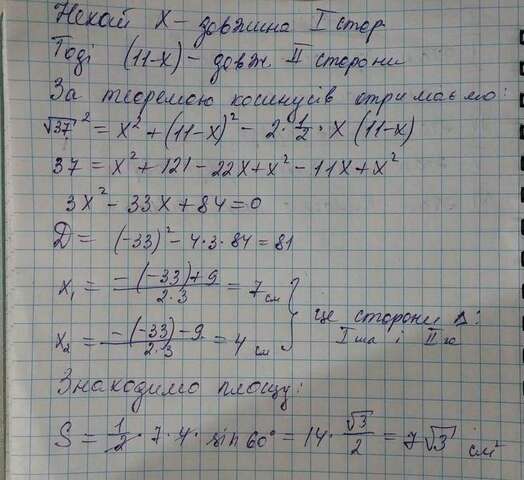 Нехай х – довжина I стор
Тоді (11-х) – довж II сторони
За теоремою косинусів отримаємо:
√37² = х² + (11-х)² - 2·1/2·х (11-х)
37 = х² + 121 - 22х + х² - 11х + х²
3х² - 33х + 84 = 0
D = (-33)² - 4·3·84 = 81
х₁ = (-(-33)+9)/(2·3) = 7 см
х₂ = (-(-33)-9)/(2·3) = 4 см
} це сторони Δ:
I ша і II га
Знаходимо площу:
S = 1/2 · 7 · 4 · sin 60° = 14 · √3/2 = 7√3 см²